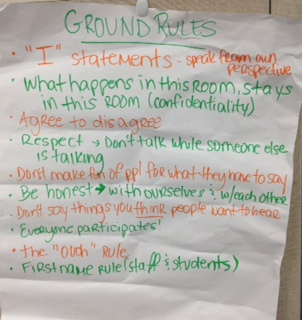 GROUND RULES
• "I" statements - speak from own
perspective
• What happens in this room, stays
in this room (confidentiality)
• Agree to disagree
• Respect → Don't talk while someone else
is talking
• Don't make fun of ppl for what they have to say
• Be honest → with ourselves & w/each other
• Don't say things you think people want to hear
• Everyone participates!
• the "Ouch" Rule
• First name Rule (staff & students)